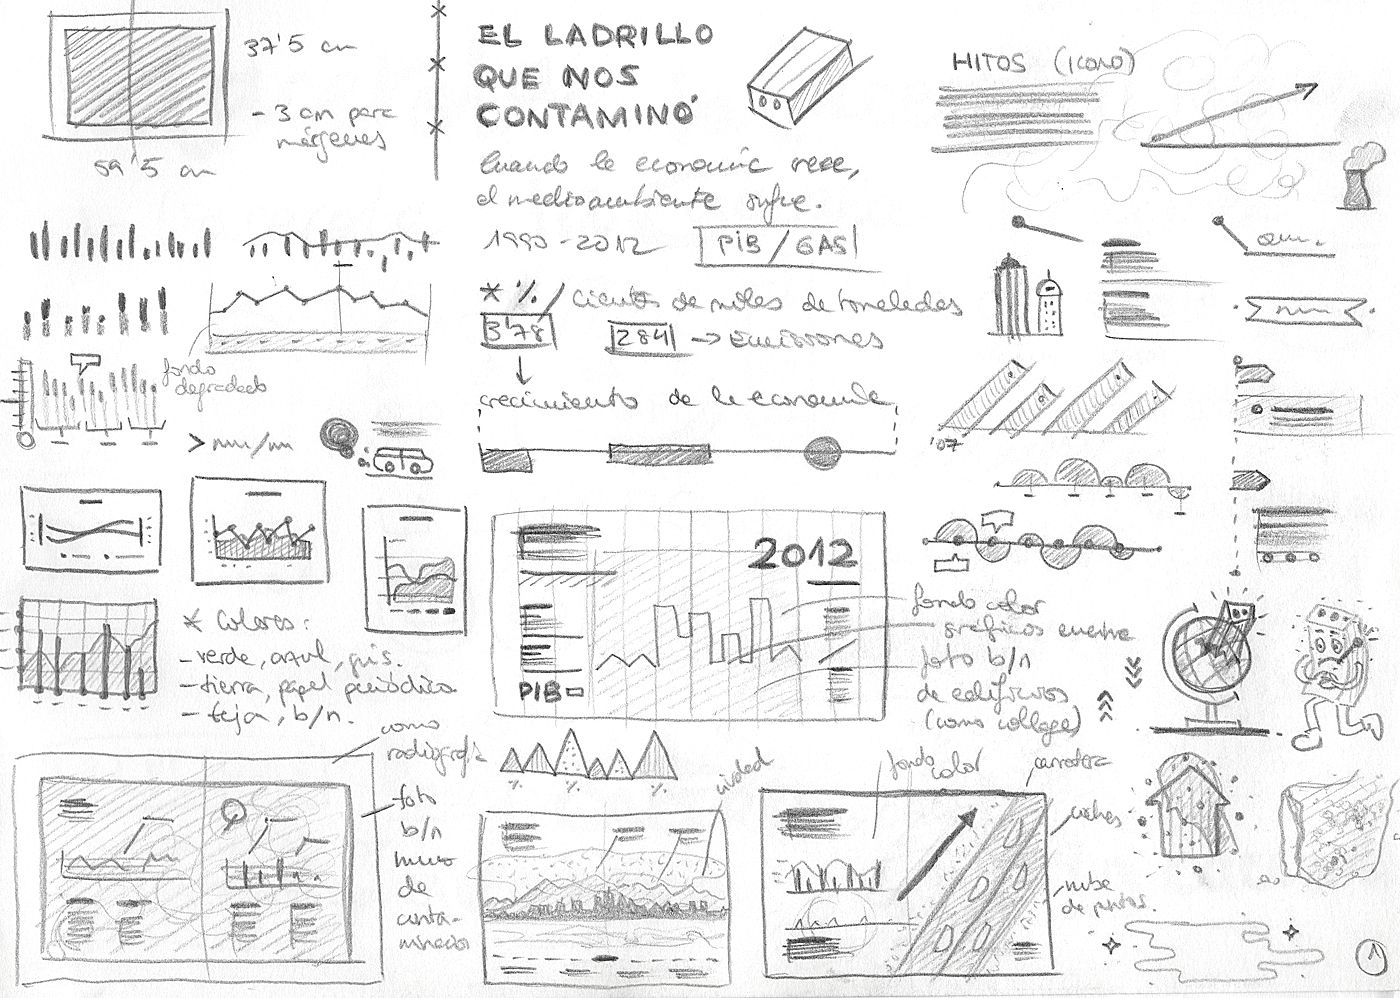 37'5 cm
- 3 cm para
márgenes
59'5 cm
EL LADRILLO
QUE NOS
CONTAMINÓ
Cuando la economía crece,
el medioambiente sufre.
1990-2012 PIB/GAS
* % / cientos de miles de toneladas
3'78 284 → Emisiones
crecimiento de la economía
HITOS (ICONO)
fondo
degradado
'07
* Colores:
- verde, azul, gris.
- tierra, papel periódico
- teja, b/n.
2012
PIB
fondo color
gráficos encima
foto b/n
de edificios
(como collage)
como
radiografía
foto
b/n
humo
de
conta-
minación
% % %
ciudad
fondo
color
carretera
coches
nube
de puntos.
1